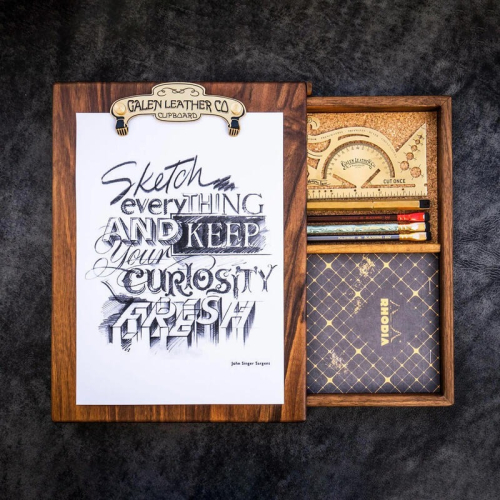 GALEN LEATHER CO
CLIPBOARD
Sketch
everyTHING
AND KEEP
Your
CURIOSITY
FRESH
John Singer Sargent
CUT ONCE
RHODIA